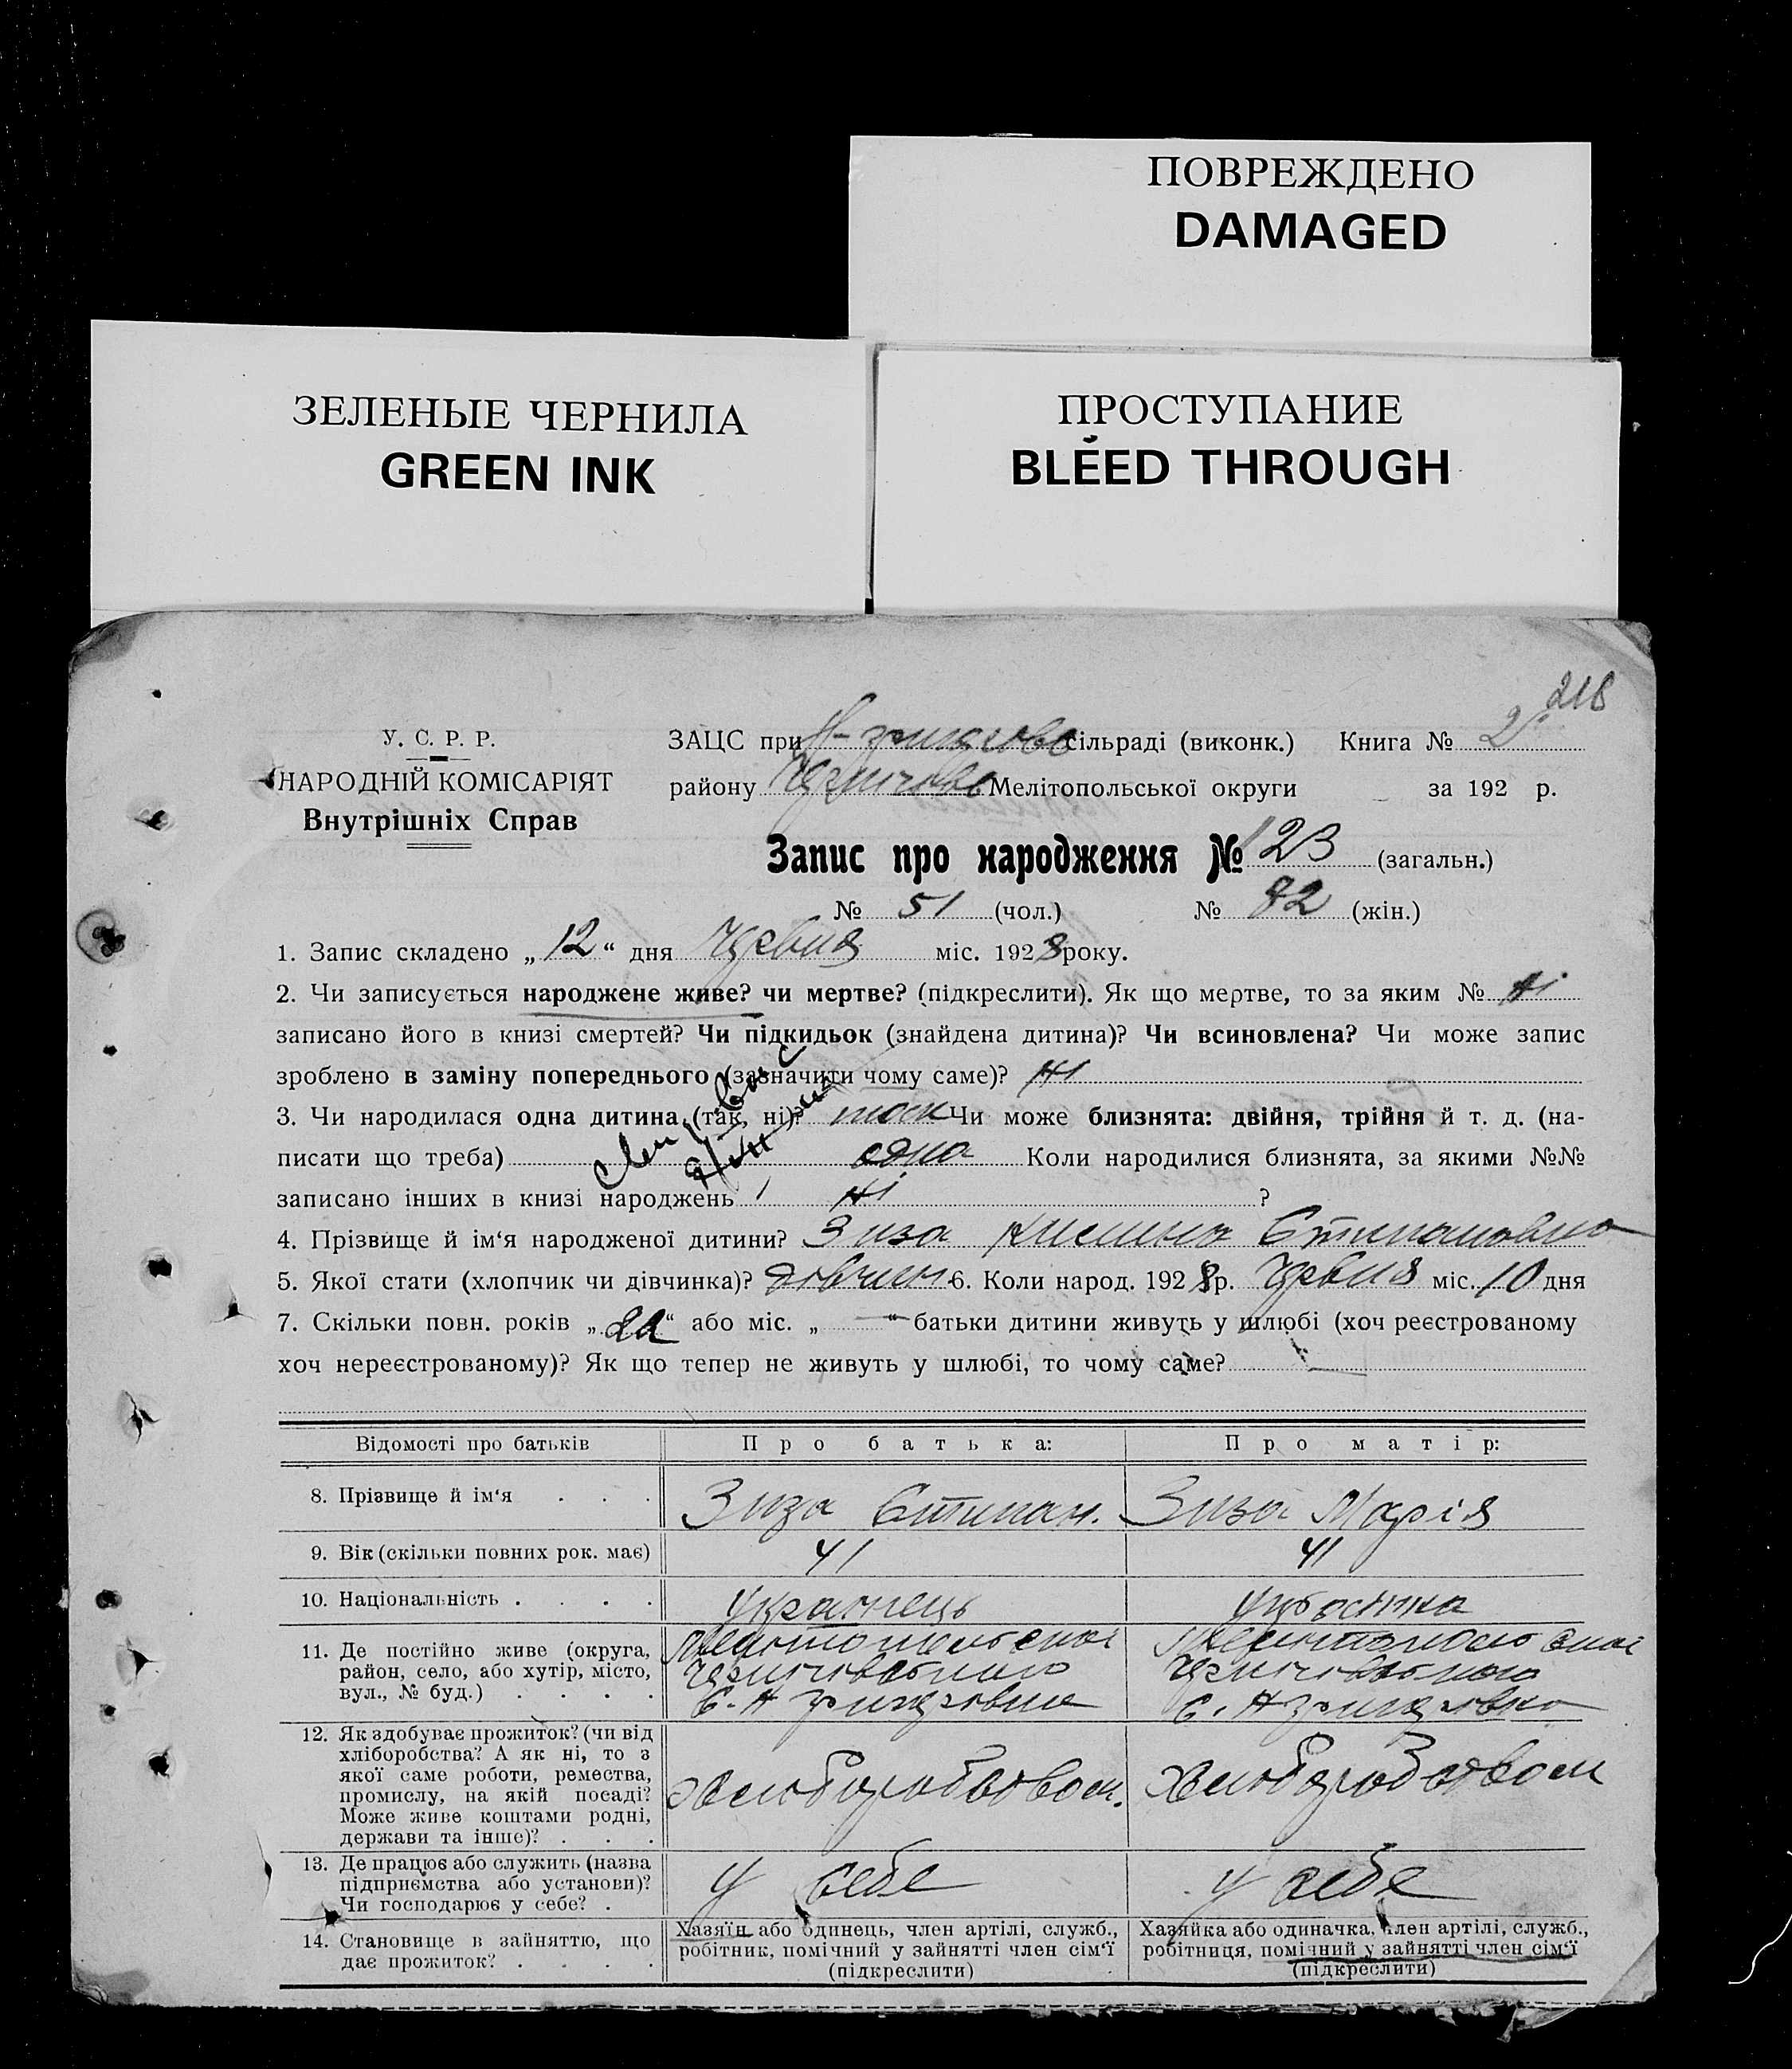 ПОВРЕЖДЕНО
DAMAGED
ЗЕЛЕНЫЕ ЧЕРНИЛА
GREEN INK
ПРОСТУПАНИЕ
BLEED THROUGH
218
У. С. Р. Р.
НАРОДНІЙ КОМІСАРІЯТ
Внутрішніх Справ
ЗАЦС при сільраді (виконк.) Книга № 2
району Мелітопольської округи за 192 р.
Запис про народження № 123 (загальн.)
№ 51 (чол.) № 82 (жін.)
1. Запис складено „12“ дня Червня міс. 1928 року.
2. Чи записується народжене живе? чи мертве? (підкреслити). Як що мертве, то за яким № Ні
записано його в книзі смертей? Чи підкидьок (знайдена дитина)? Чи всиновлена? Чи може запис
зроблено в заміну попереднього (зазначити чому саме)? Ні
3. Чи народилася одна дитина (так, ні)? так Чи може близнята: двійня, трійня й т. д. (на-
писати що треба) одна Коли народилися близнята, за якими №№
записано інших в книзі народжень Ні ?
4. Прізвище й ім‘я народженої дитини? Зиза Стипановна
5. Якої стати (хлопчик чи дівчинка)? дівчин 6. Коли народ. 1928 р. Червня міс. 10 дня
7. Скільки повн. років „22“ або міс. „—“ батьки дитини живуть у шлюбі (хоч реєстрованому
хоч нереєстрованому)? Як що тепер не живуть у шлюбі, то чому саме? —
Відомості про батьків Про батька: Про матір:
8. Прізвище й ім‘я . . . Зиза Стипан. Зиза Марія
9. Вік (скільки повних рок. має) 41 41
10. Національність . . . . Українець
11. Де постійно живе (округа,
район, село, або хутір, місто,
вул., № буд.) . . . .
12. Як здобуває прожиток? (чи від
хліборобства? А як ні, то з
якої саме роботи, ремества,
промислу, на якій посаді?
Може живе коштами родні,
держави та інше)? . . . Хлиборобством. Хлиборобством
13. Де працює або служить (назва
підприємства або установи)?
Чи господарює у себе? . у себе у себе
14. Становище в зайняттю, що
дає прожиток? . . . .
Хазяїн або одинець, член артілі, служб.,
робітник, помічний у зайнятті член сім‘ї
(підкреслити)
Хазяйка або одиначка, член артілі, служб.,
робітниця, помічний у зайнятті член сім‘ї
(підкреслити)